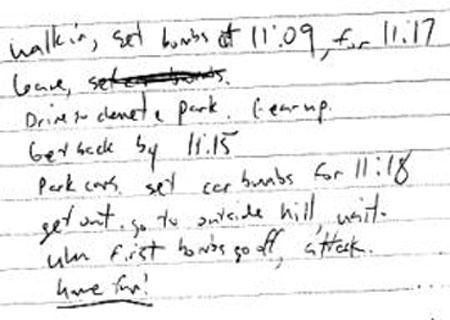 walk in, set bombs at 11:09, for 11:17
leave, set car bombs.
Drive to clemete park. Gear up.
Get back by 11:15
Park cars. set car bombs for 11:18
get out, go to outside hill, wait.
when first bombs go off, attack.
have fun!